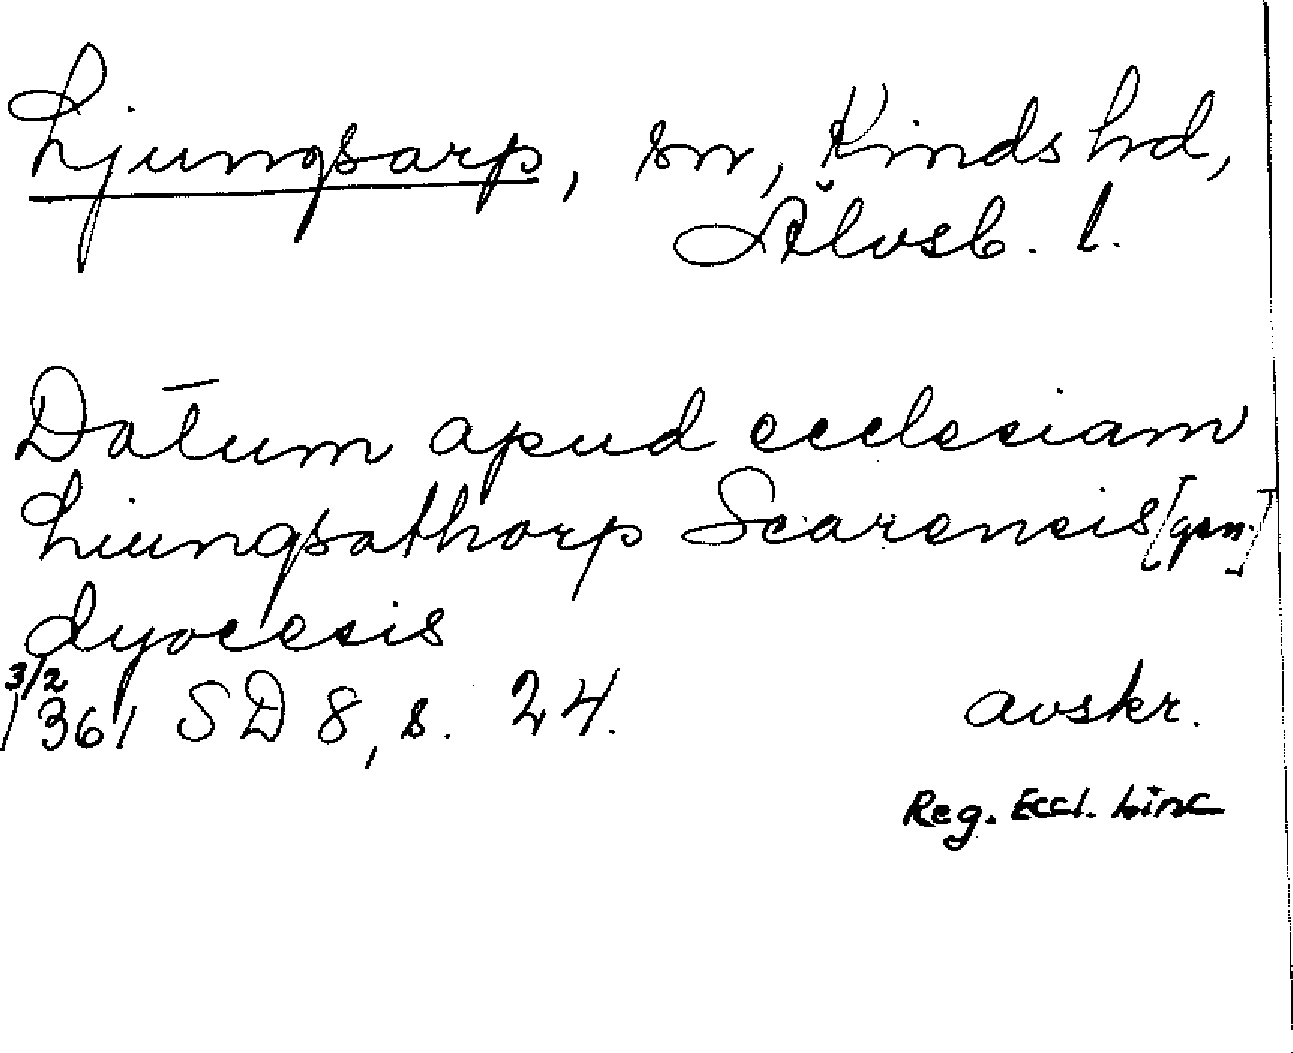 Ljungsarp, sn, Kinds hd,
Älvsb. l.
Datum apud ecclesiam
Liungsathorp Scarensis [gen.]
dyocesis
3/2
1361 SD 8, s. 24. avskr.
Reg. Eccl. Linc